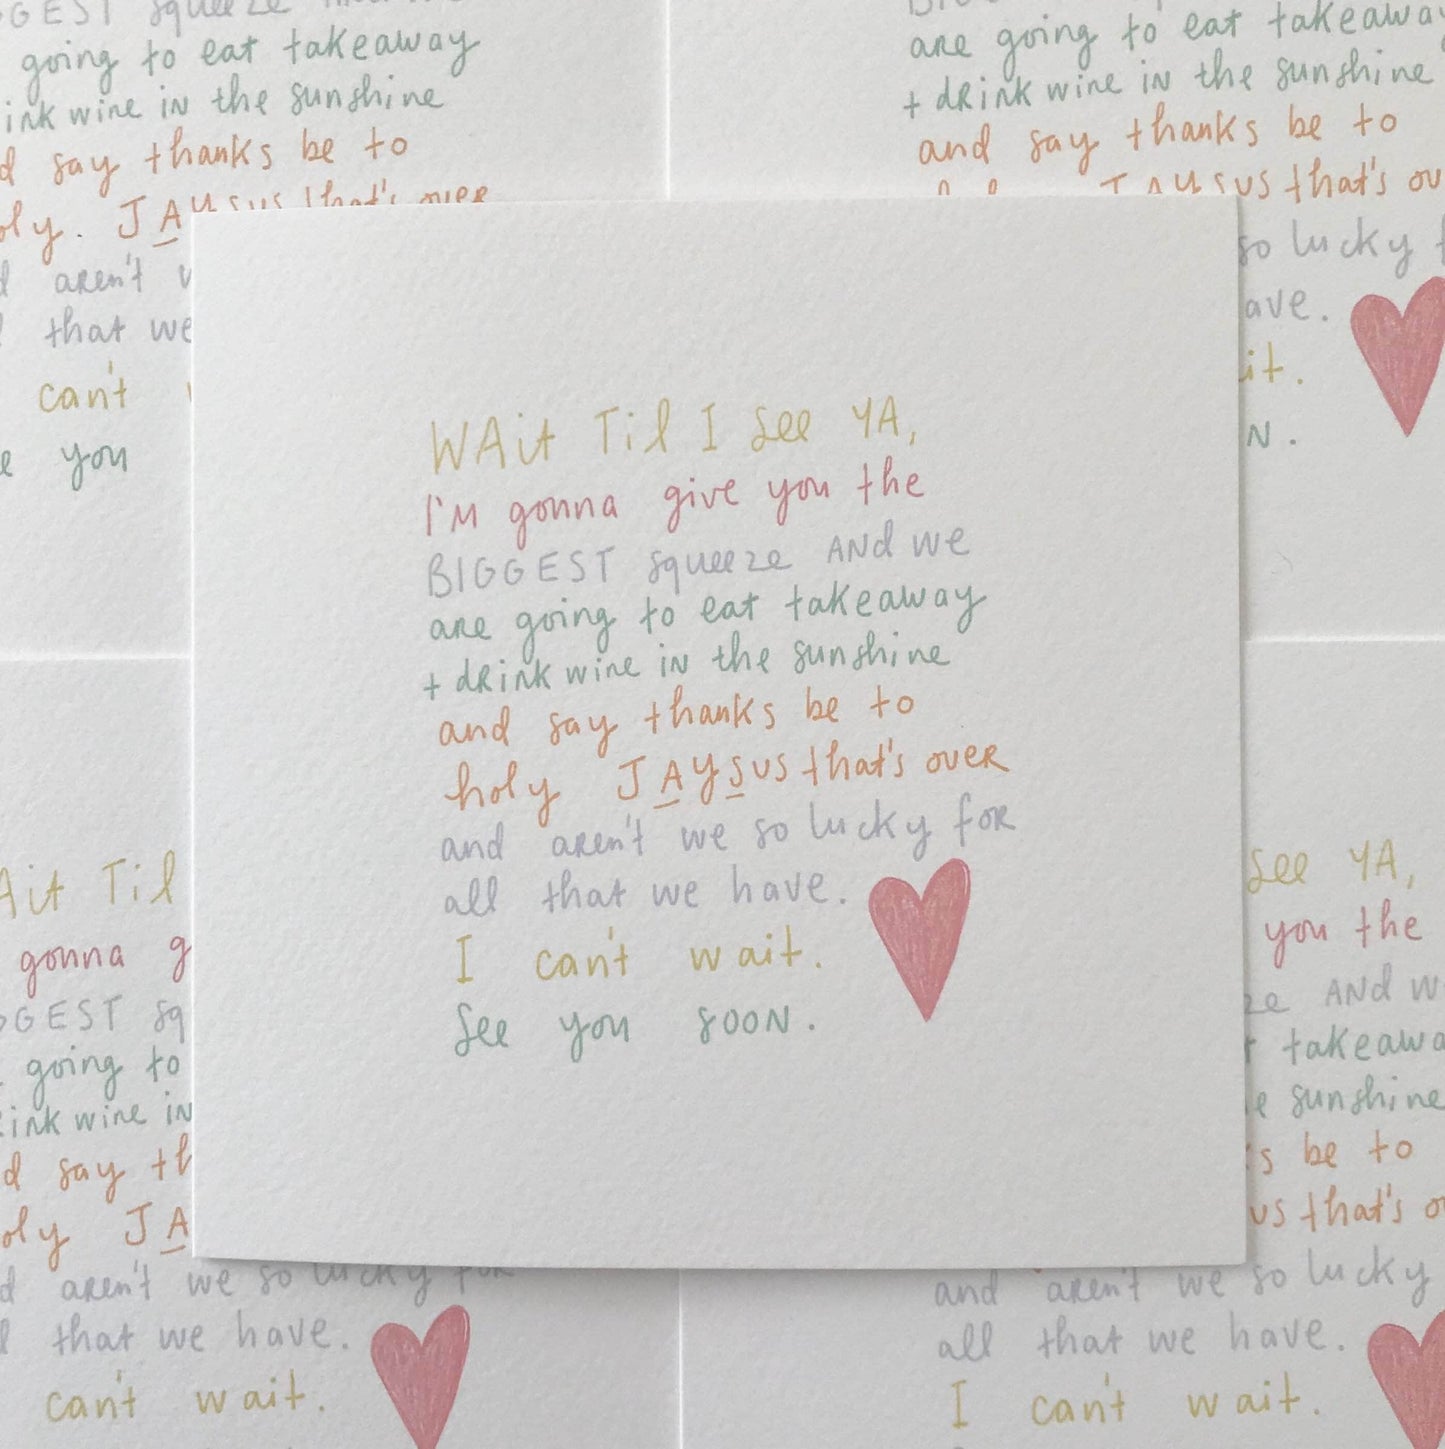 GGEST squeeze
going to eat takeaway
ink wine in the sunshine
d say thanks be to
oly. JAYSUS that's over
d aren't
that we
can't
e you
are going to eat takeaway
+ drink wine in the sunshine
and say thanks be to
JAYSUS that's ov
so lucky f
ave.
it.
N.
WAit Til I See YA,
I'M gonna give you the
BIGGEST squeeze ANd we
are going to eat takeaway
+ dRink wine in the sunshine
and say thanks be to
holy JAYSUS that's oveR
and aren't we so lucky foR
all that we have.
I can't wait.
See you sooN.
Ait Til
gonna g
GGEST sq
going to
ink wine in
d say th
oly JA
d aren't we so lucky for
l that we have.
can't wait.
See YA,
you the
ze ANd w
t takeawa
e sunshine
s be to
us that's o
and aren't we so lucky
all that we have.
I can't wait.